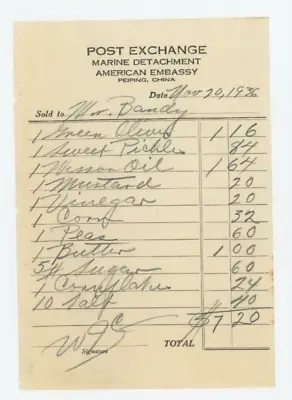 POST EXCHANGE
MARINE DETACHMENT
AMERICAN EMBASSY
PEIPING, CHINA
Date Nov 20, 1936
Sold to Mr. Bandy
1 Green Olives 1 16
1 Sweet Pickle 84
1 Wesson Oil 1 64
1 Mustard 20
1 Vinegar 20
1 Corn 32
1 Peas 60
1 Butter 1 00
5# Sugar 60
1 Cornflakes 24
10 Salt 40
$7 20
TOTAL
Signature